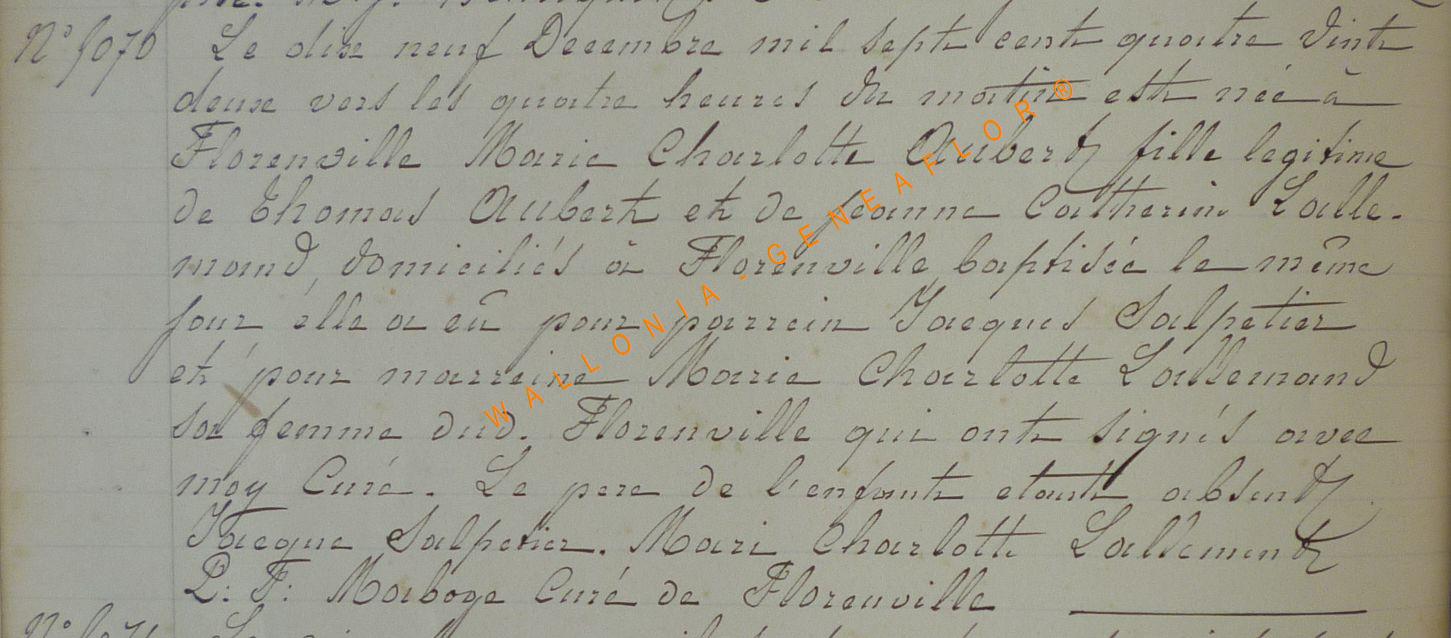 N° 5070 Le dixe neuf Decembre mil sept cent quatre vint
deuxe vers les quatre heures du matin est née à
Florenville Marie Charlotte Aubert fille legitime
de Thomas Aubert et de Jeanne Catherine Lalle-
mand, domiciliés à Florenville baptisée le même
jour elle a eû pour parrein Jacques Salpetier
et pour marreine Marie Charlotte Lallemand
sa femme dud. Florenville qui ont signés avec
moy Curé. Le pere de l'enfant etant absent
Jacque Salpetier. Mari Charlotte Lallement
P: F: Maboge Curé de Florenville
WALLONIA - GENEAFLOR ®